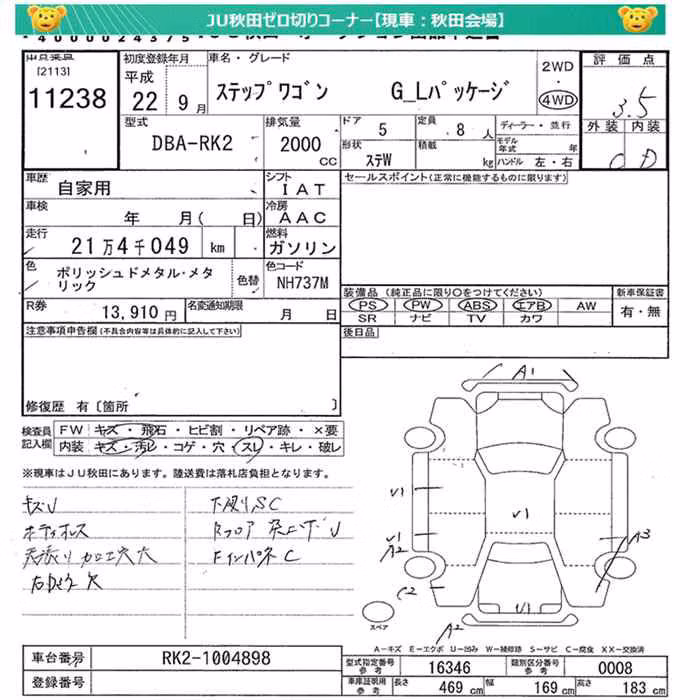 JU秋田ゼロ切りコーナー【現車：秋田会場】
出品票番
[2113]
11238
初度登録年月
平成
22年 9月
車名・グレード
ステップワゴン G_Lパッケージ
2WD
・
4WD
評価点
3.5
外装 内装
C D
型式
DBA-RK2
排気量
2000
cc
ドア
5
定員
8人
形状
ステW
積載
kg
ディーラー・並行
モデル年式 年
ハンドル 左・右
車歴
自家用
シフト
IAT
セールスポイント(正常に機能するものに限ります)
車検
年 月( 日)
冷房
AAC
走行
21万4千049 km
燃料
ガソリン
色
ポリッシュドメタル・メタリック
色替
色コード
NH737M
R券
13,910円
名変通知期限
月 日
装備品(純正品に限り○をつけてください)
PS PW ABS エアB AW
SR ナビ TV カワ
新車保証書
有・無
後日品
注意事項申告欄(不具合内容等は具体的に記入して下さい)
修復歴 有〔箇所 〕
検査員記入欄
FW キズ・飛石・ヒビ割・リペア跡・×要
内装 キズ・汚レ・コゲ・穴・スレ・キレ・破レ
※現車はJU秋田にあります。陸送費は落札店負担となります。
キズU
下廻りSC
A1
U1
U1
U1
A2
A3
C2
U1
A2
スペア
A－キズ E－エクボ U－凹み W－補修跡 S－サビ C－腐食 XX－交換済
車台番号
RK2-1004898
登録番号
型式指定番号
16346
類別区分番号
0008
車庫証明用参考
長さ 469cm
幅 169cm
高さ 183cm